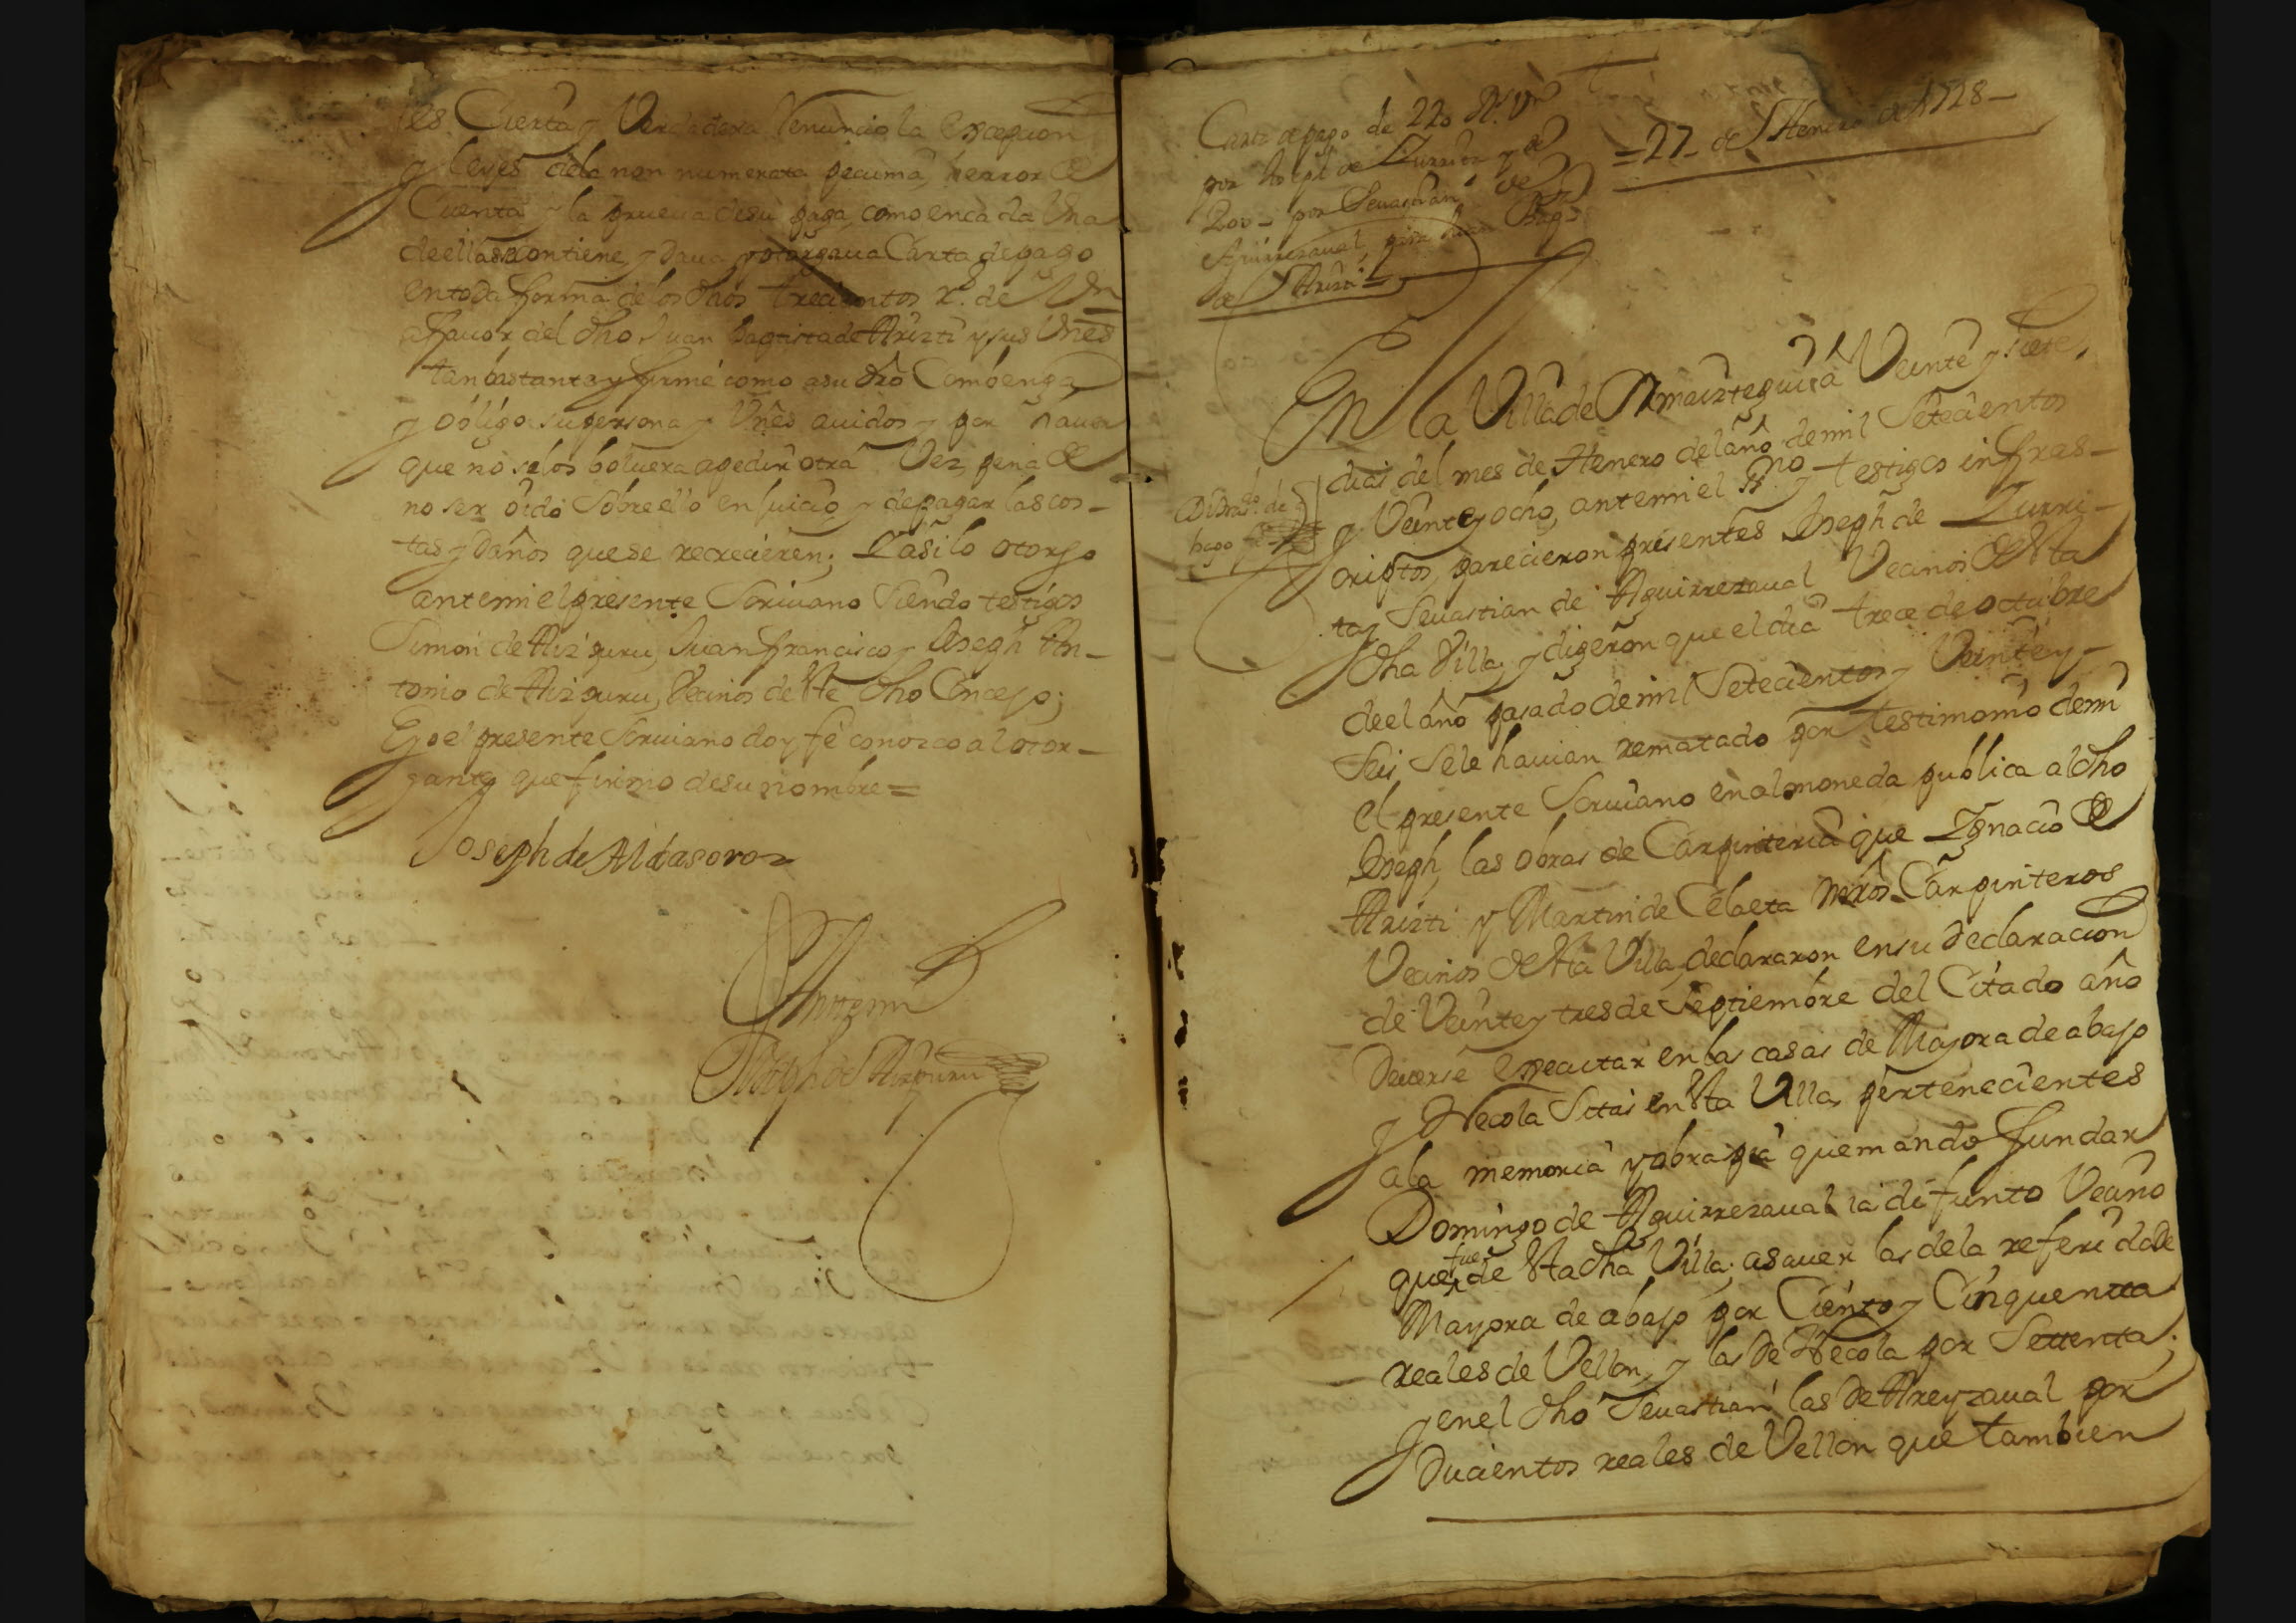 es Cierta y Verdadera Renuncio la excepcion
y leyes dela non numerata pecunia, herror de
Cuenta y la prueua desu paga, como en cada Una
de ellas se contiene, y daua y otorgaua Carta de pago
entoda forma delos dhos trecientos Rs. de Vn
afauor del dho Juan Baptista de Arizti y sus Vnes
tan bastante y firme como asu dro Combenga,
y obligo su persona y Vnes auidos y por hauer
que no selos boluera apedir otra Vez, pena de
no ser oido Sobre ello en Juicio y de pagar las cos-
tas y daños que se recrecieren; Y asi lo otorgo
ante mi el presente Scriuano Siendo testigos
Simon de Aizpuru, Juan francisco y Joseph An-
tonio de Aizpuru, Vecinos deste dho Concejo;
E yo el presente Scriuano doy fe conozco al otor-
gante que firmo desu nombre =
Joseph de Aldasoro
Ante mi
Joseph de Aizpuru
Carta de pago de 220 Rs. Vn
por Joseph de Zurrita y de
200 - por Seuastian de
Aguirrezaual, para Juan Bap-
de Arizti =
= 27 - de Henero de 1728 -
En la Villa de Asmaizteguia Veinte y siete,
dias del mes de Henero del año de mil Setecientos
y Veinte y ocho, ante mi el Ssno y testigos infras-
criptos, parecieron presentes Joseph de Zurri-
ta y Seuastian de Aguirrezaual Vecinos desta
dha Villa, y digeron que el dia trece de octubre
de el año pasado de mil Setecientos y Veinte y-
Seis Sele hauian rematado por testimonio de mi
el presente Scriuano en almoneda publica al dho
Joseph, las obras de Carpinteria que Ignacio de
Arizti y Martin de Celaeta Mros Carpinteros
Vecinos desta Villa, declararon en su declaracion
de Veinte y tres de Septiembre del Citado año
Deuerse executar en las casas de Mayora de abajo
y Recola Sitas en esta Villa, pertenecientes
ala memoria y obra pia que mando fundar
Domingo de Aguirrezaual ia difunto Vecino
que fue de esta dha Villa; asauer las dela referida de
Mayora de abajo por Ciento y Cinquenta
reales de Vellon, y las de Recola por Settenta;
y en el dho Seuastian las de Areyzaual por
Ducientos reales de Vellon que tambien